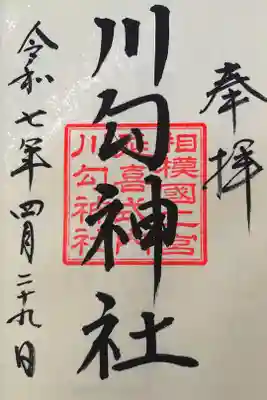 奉拝
川勾神社
相模國二宮
延喜式内
川勾神社
令和七年四月二十九日